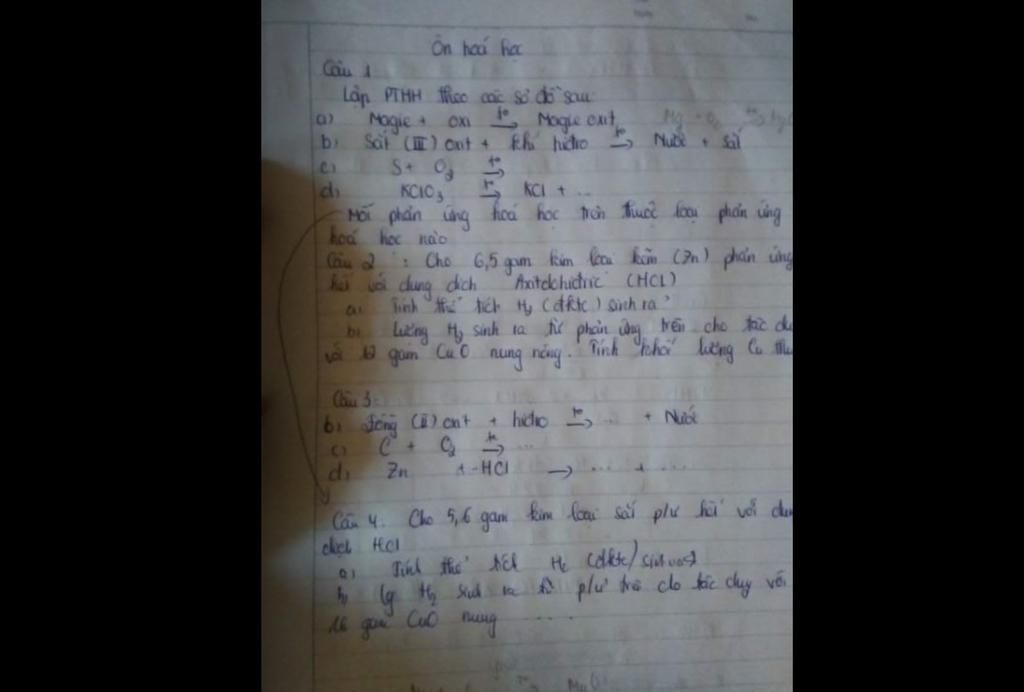 Ôn hoá học
Câu 1
Lập PTHH theo các sơ đồ sau
a) Magie + oxi t° → Magie oxit
b) Sắt (III) oxit + khí hiđro t° → Nước + Sắt
c) S + O₂ t° →
d) KClO₃ t° → KCl + ...
Mỗi phản ứng hoá học trên thuộc loại phản ứng
hoá học nào
Câu 2 : Cho 6,5 gam kim loại kẽm (Zn) phản ứng
hết với dung dịch Axitclohiđric (HCl)
a) Tính thể tích H₂ (đktc) sinh ra ?
b) Lượng H₂ sinh ra từ phản ứng trên cho tác dụ
với 12 gam CuO nung nóng. Tính khối lượng Cu thu
Câu 3:
b) Đồng (II) oxit + hiđro t° → ... + Nước
c) C + O₂ t° → ...
d) Zn + HCl → ... + ...
Câu 4. Cho 5,6 gam kim loại sắt p/ư hết với dun
dịch HCl
a) Tính thể tích H₂ (đktc) sinh
b) lg H₂ sinh ra từ p/ư trên cho tác dụng với
16 gam CuO nung ....